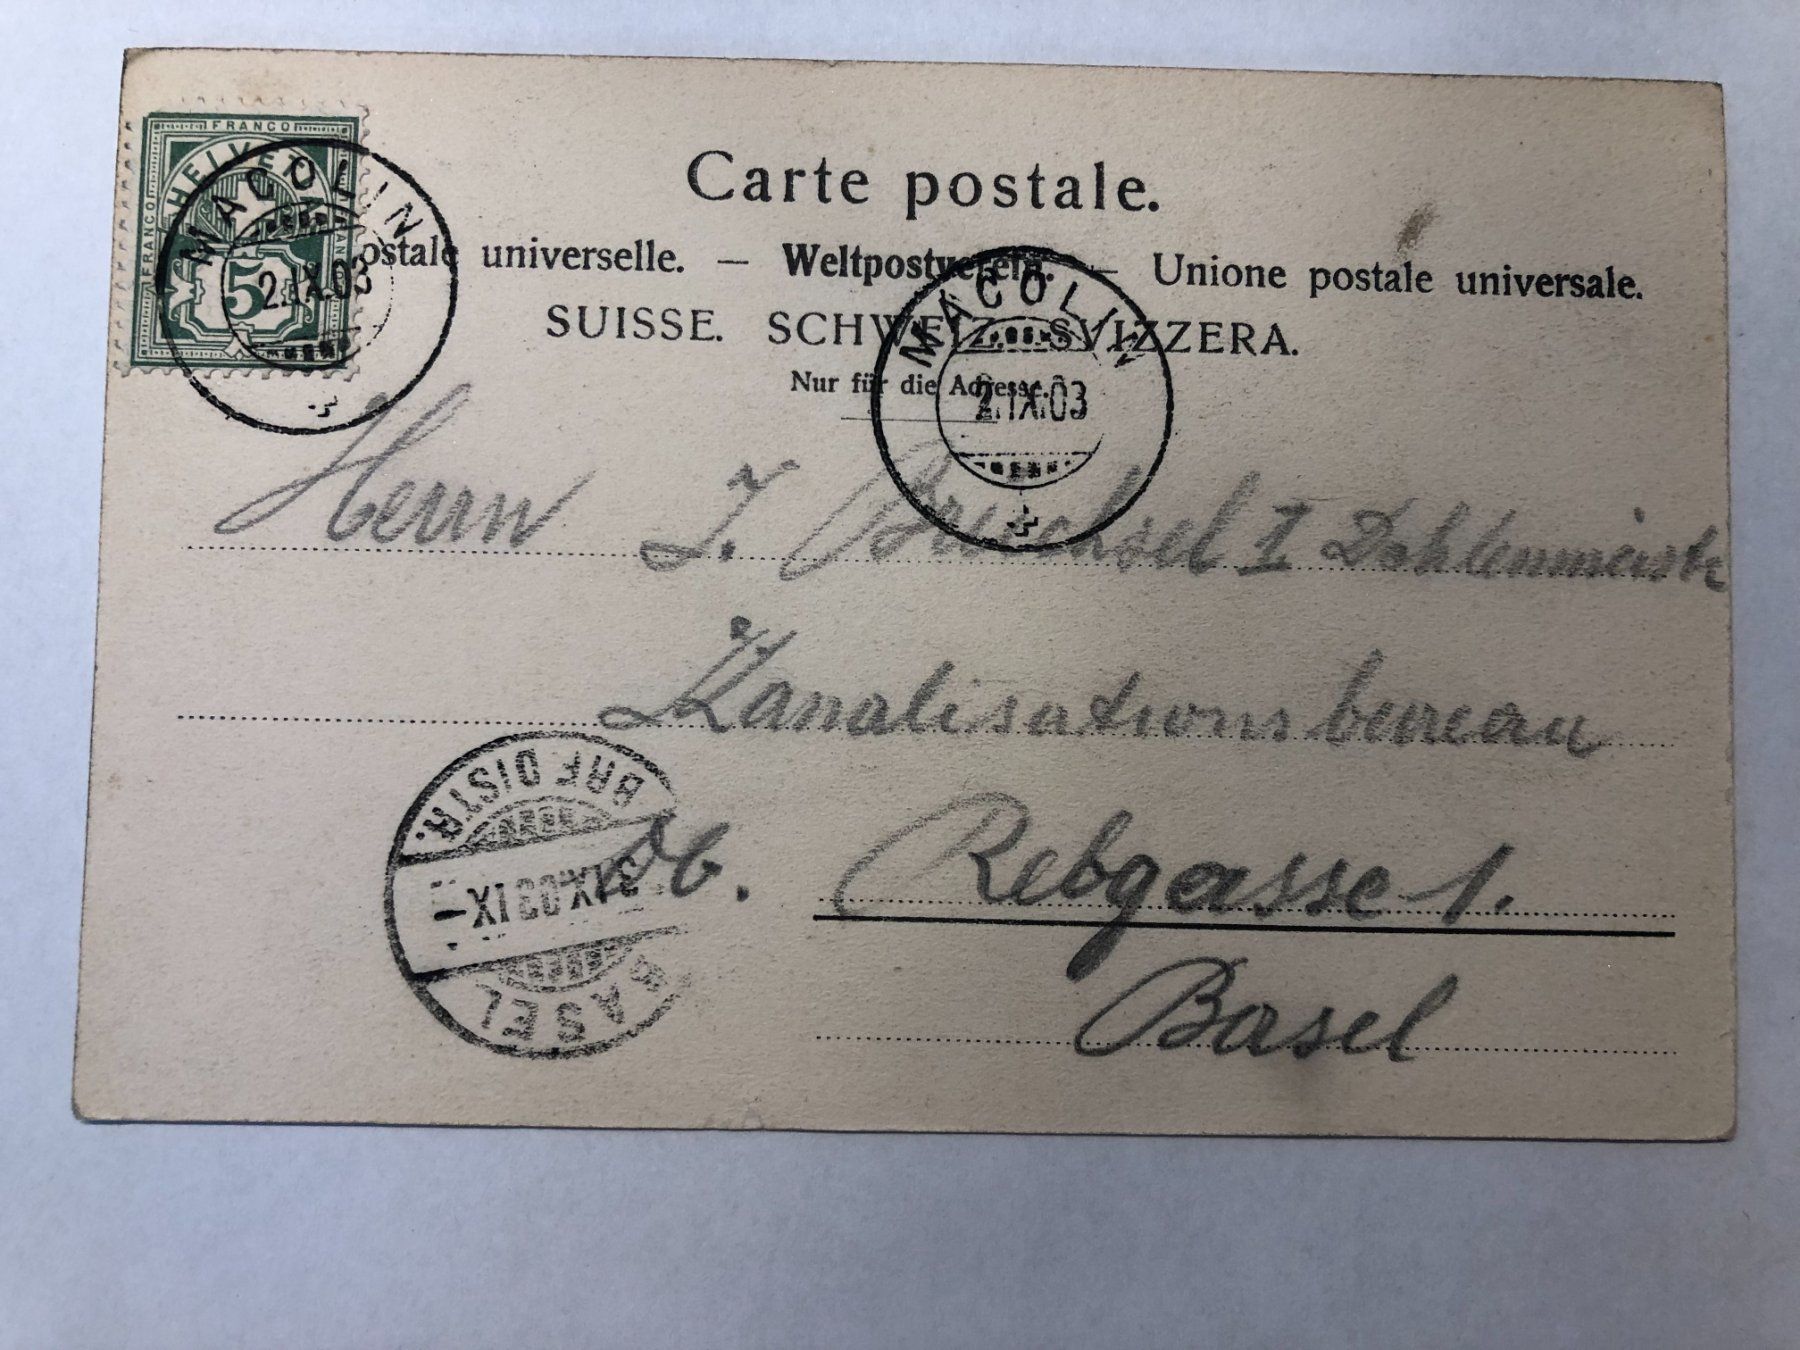 FRANCO
HELVETIA
FRANCO
FRANCO
5
MACOLIN
2.IX.03
Carte postale.
postale universelle. — Weltpostverein. — Unione postale universale.
SUISSE. SCHWEIZ. SVIZZERA.
Nur für die Adresse.
MACOLIN
2.IX.03
Herrn J. Bruchsel I Dohlenmeistr
Kanalisationsbureau
BRF. DISTR.
3.IX.03 IX–
BASEL
Rebgasse 1.
Basel